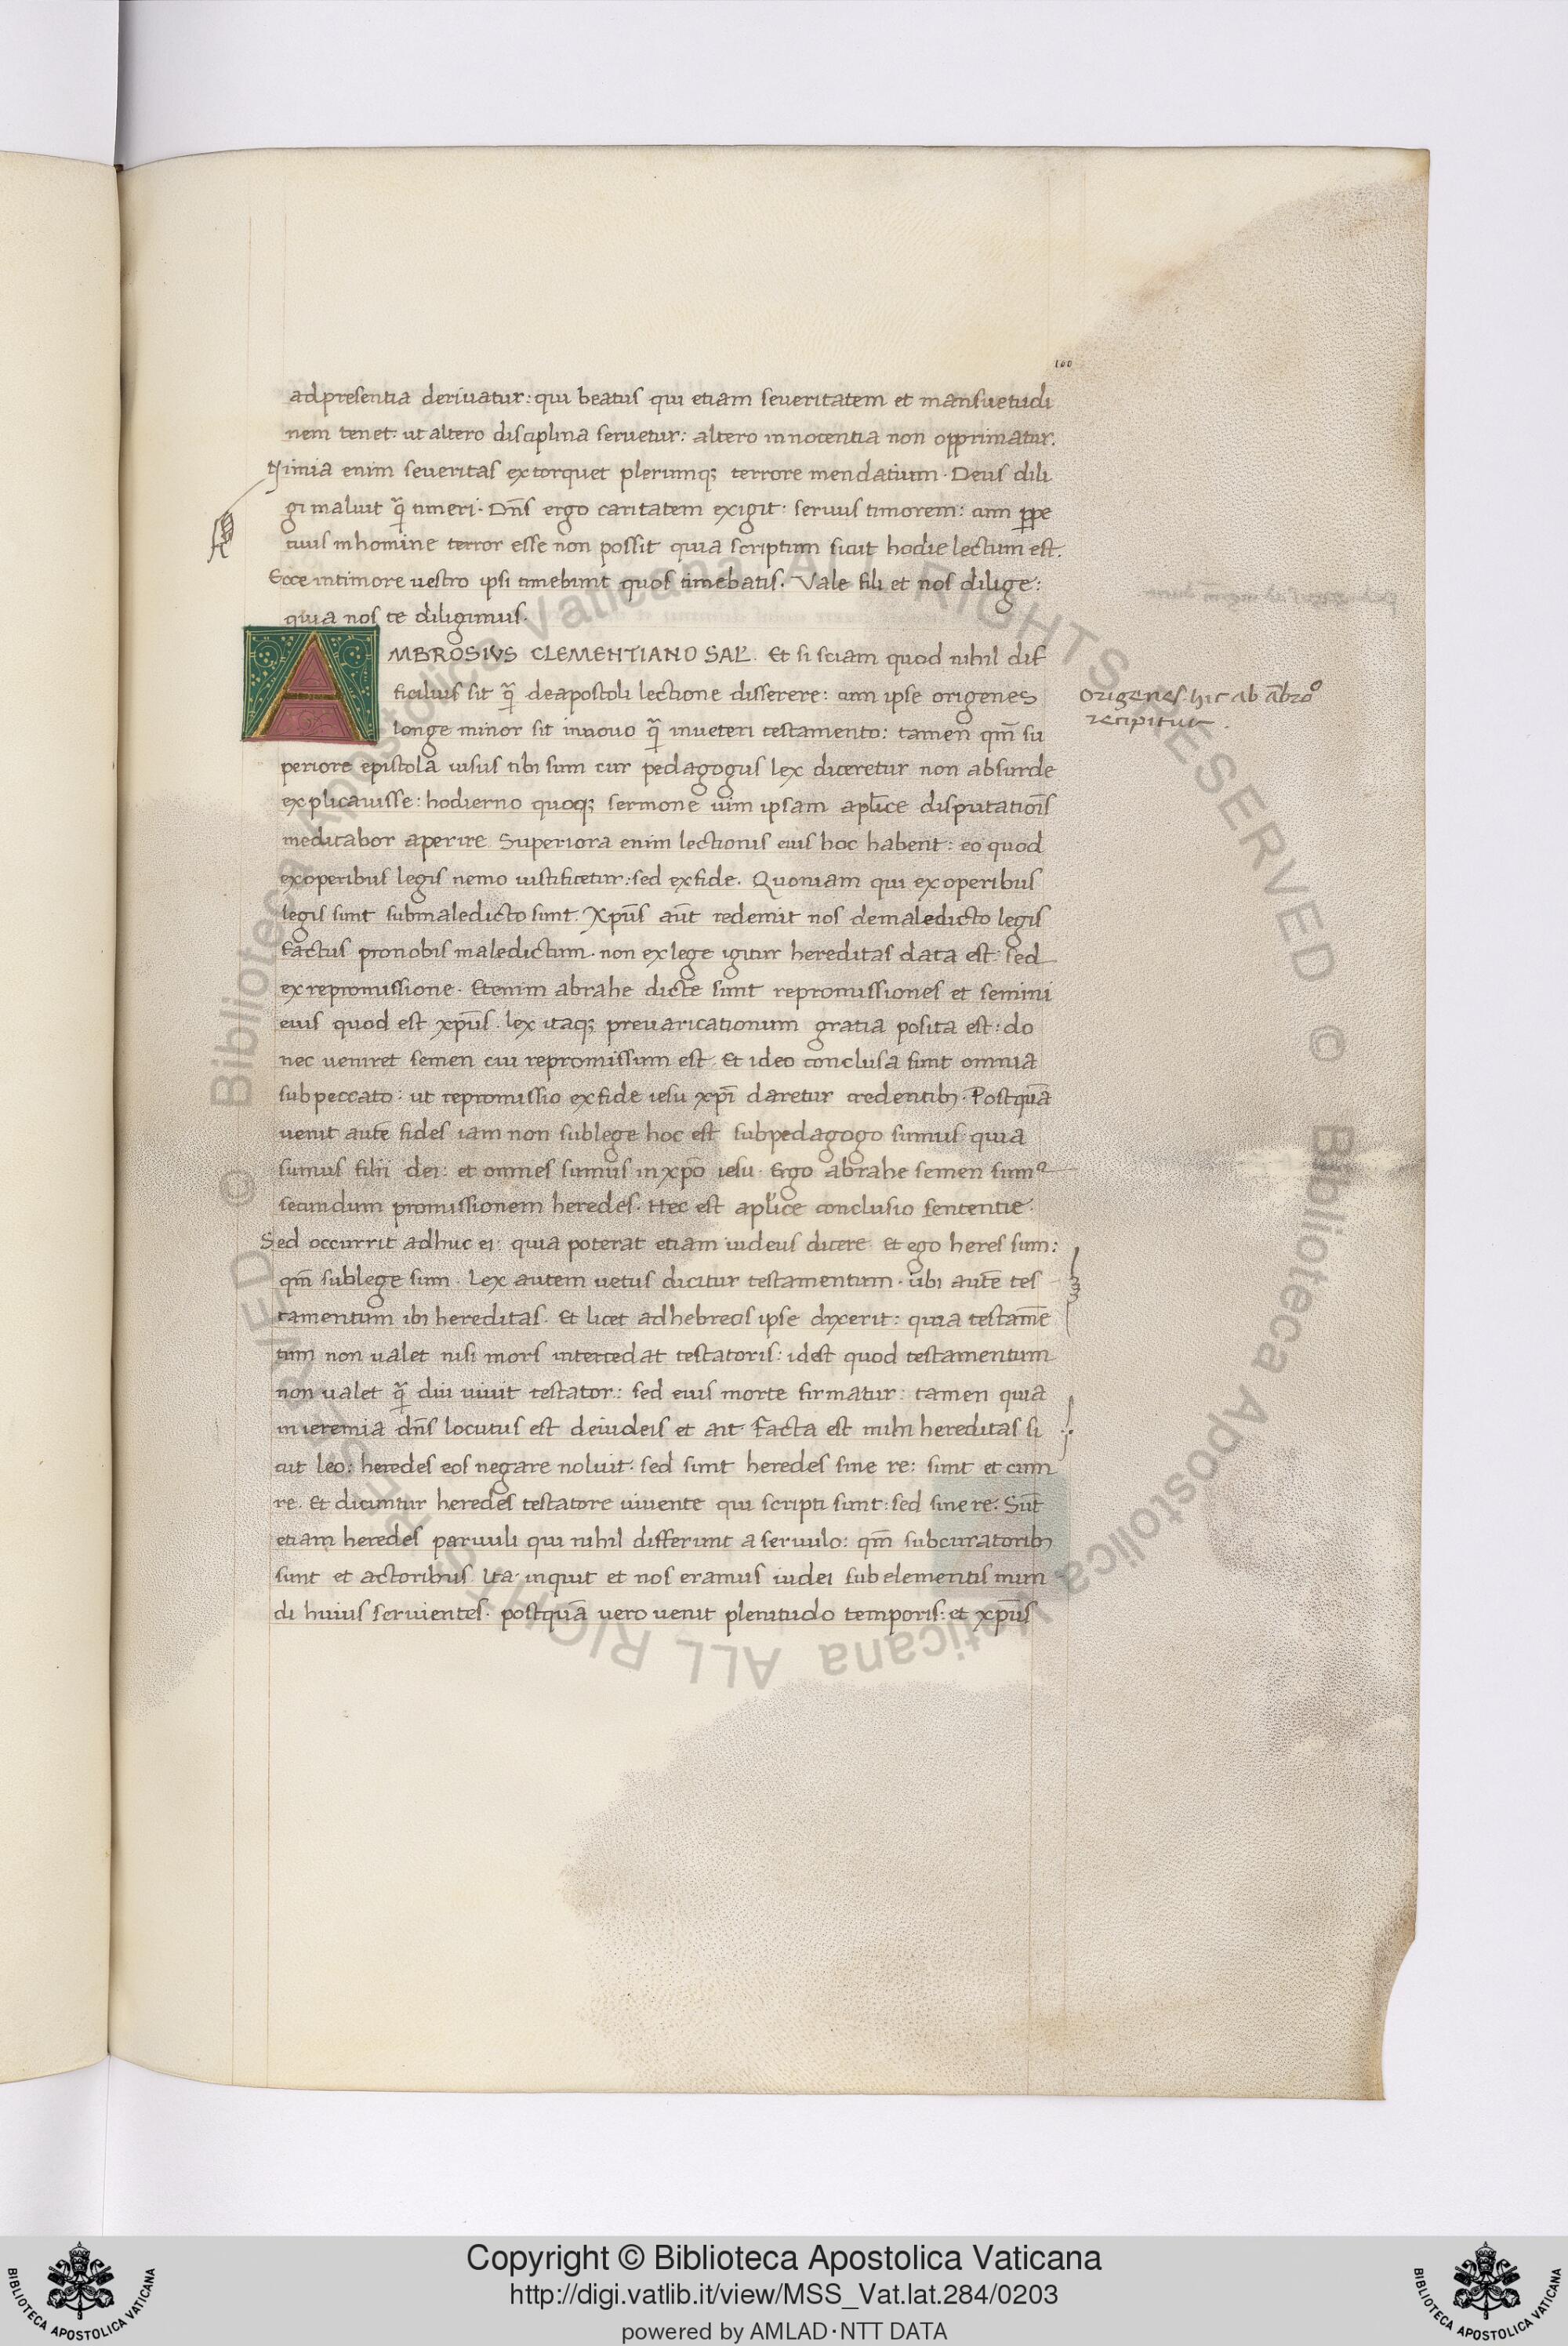 100
adpresentia deriuatur: qui beatus qui etiam seueritatem et mansuetudi
nem tenet: ut altero disciplina seruetur: altero innocentia non opprimatur.
Nimia enim seueritas extorquet plerumq; terrore mendatium. Deus dili
gi maluit q̄ timeri. Dn̄s ergo caritatem exigit: seruus timorem: cum ꝑpe
tuus inhomine terror esse non possit quia scriptum sicut hodie lectum est.
Ecce intimore uestro ipsi timebunt quos timebatis. Vale fili et nos dilige:
quia nos te diligimus.
AMBROSIVS CLEMENTIANO SAL̄. Et si sciam quod nihil dif
ficilius sit q̄ deapostoli lectione disserere: cum ipse origenes
longe minor sit innouo q̄ inueteri testamento: tamen qm̄ su
periore epistola uisus tibi sum cur pedagogus lex diceretur non absurde
explicauisse: hodierno quoq; sermone uim ipsam apl̄ice disputatiōis
meditabor aperire. Superiora enim lectionis eius hoc habent: eo quod
exoperibus legis nemo iustificetur: sed exfide. Quoniam qui exoperibus
legis sunt submaledicto sunt. Xpūs aūt redemit nos demaledicto legis
factus pronobis maledictum. non exlege igitur hereditas data est: sed
exrepromissione. Etenim abrahe dicte sunt repromissiones et semini
eius quod est xpūs. lex itaq; preuaricationum gratia posita est: do
nec ueniret semen cui repromissum est. Et ideo conclusa sunt omnia
subpeccato: ut repromissio exfide iesu xpī daretur credentibꝫ. Postquā
uenit autē fides iam non sublege hoc est subpedagogo sumus quia
sumus filii dei: et omnes sumus inxpō iesu. Ergo abrahe semen sumꝰ
secundum promissionem heredes. Hec est apl̄ice conclusio sententie.
Sed occurrit adhuc ei: quia poterat etiam iudeus dicere. Et ego heres sum:
qm̄ sublege sum. Lex autem uetus dicitur testamentum. ubi autē tes
tamentum ibi hereditas. Et licet adhebreos ipse dixerit: quia testamē
tum non ualet nisi mors intercedat testatoris: idest quod testamentum
non ualet q̄ diu uiuit testator: sed eius morte firmatur: tamen quia
inieremia dn̄s locutus est deiudeis et ait. Facta est mihi hereditas si
cut leo: heredes eos negare noluit. sed sunt heredes sine re: sunt et cum
re. Et dicuntur heredes testatore uiuente qui scripti sunt: sed sine re. Sūt
etiam heredes paruuli qui nihil differunt a seruulo: qm̄ subcuratoribꝫ
sunt et actoribus. Ita inquit et nos eramus iudei subelementis mun
di huius seruientes. postquā uero uenit plenitudo temporis: et xpūs
Origenes hic ab ābroº
recipitur.
© Biblioteca Apostolica Vaticana ALL RIGHTS RESERVED © Biblioteca Apostolica Vaticana ALL RIGHTS RESERVED
Copyright © Biblioteca Apostolica Vaticana
http://digi.vatlib.it/view/MSS_Vat.lat.284/0203
powered by AMLAD·NTT DATA
BIBLIOTECA APOSTOLICA VATICANA
BIBLIOTECA APOSTOLICA VATICANA